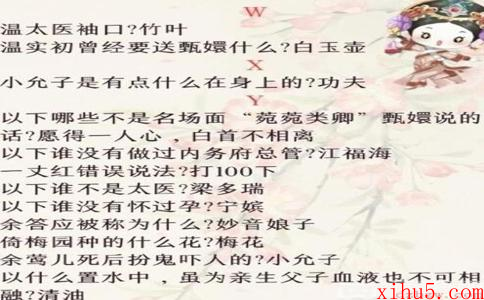 W
温太医袖口?竹叶
温实初曾经要送甄嬛什么?白玉壶
X
小允子是有点什么在身上的?功夫
Y
以下哪些不是名场面“菀菀类卿”甄嬛说的
话?愿得一人心,白首不相离
以下谁没有做过内务府总管?江福海
一丈红错误说法?打100下
以下谁不是太医?梁多瑞
以下谁没有怀过孕?宁嫔
余答应被称为什么?妙音娘子
倚梅园种的什么花?梅花
余莺儿死后扮鬼吓人的?小允子
以什么置水中,虽为亲生父子血液也不可相
融?清油
xihu5.com